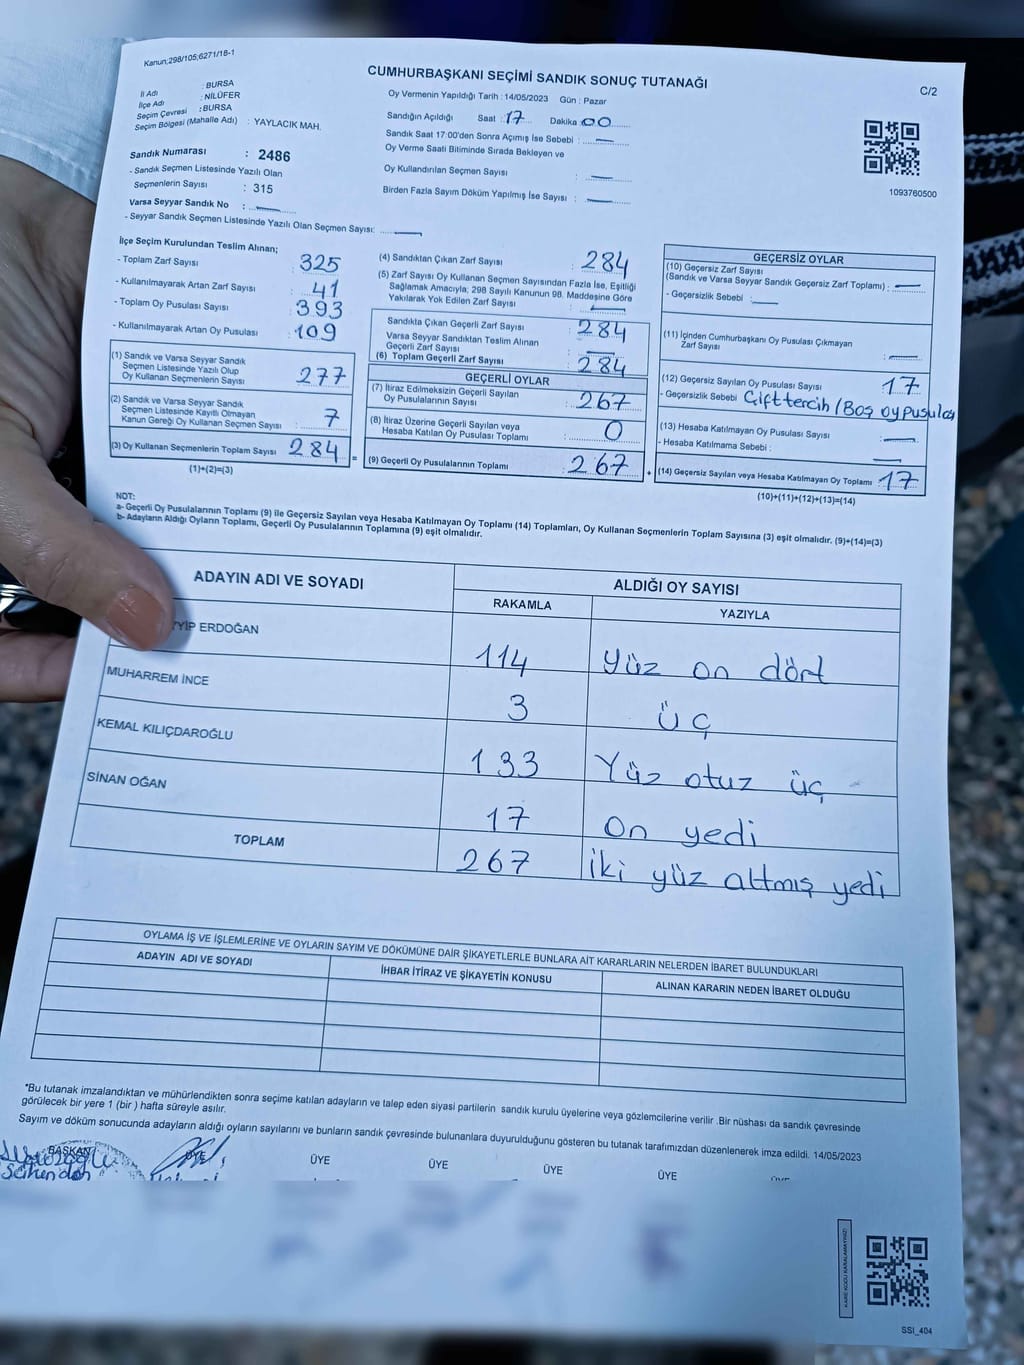 Kanun;298/105;6271/18-1
CUMHURBAŞKANI SEÇİMİ SANDIK SONUÇ TUTANAĞI
C/2
İl Adı : BURSA
İlçe Adı : NİLÜFER
Seçim Çevresi : BURSA
Seçim Bölgesi (Mahalle Adı) : YAYLACIK MAH.
Oy Vermenin Yapıldığı Tarih : 14/05/2023 Gün : Pazar
Sandığın Açıldığı Saat : 17 Dakika 00
Sandık Saat 17:00'den Sonra Açımış İse Sebebi : —
Oy Verme Saati Bitiminde Sırada Bekleyen ve
Oy Kullandırılan Seçmen Sayısı : —
Birden Fazla Sayım Döküm Yapılmış İse Sayısı : —
1093760500
Sandık Numarası : 2486
- Sandık Seçmen Listesinde Yazılı Olan
Seçmenlerin Sayısı : 315
Varsa Seyyar Sandık No : —
- Seyyar Sandık Seçmen Listesinde Yazılı Olan Seçmen Sayısı: —
İlçe Seçim Kurulundan Teslim Alınan;
- Toplam Zarf Sayısı : 325
- Kullanılmayarak Artan Zarf Sayısı : 41
- Toplam Oy Pusulası Sayısı : 393
- Kullanılmayarak Artan Oy Pusulası : 109
(1) Sandık ve Varsa Seyyar Sandık
Seçmen Listesinde Yazılı Olup
Oy Kullanan Seçmenlerin Sayısı : 277
(2) Sandık ve Varsa Seyyar Sandık
Seçmen Listesinde Kayıtlı Olmayan
Kanun Gereği Oy Kullanan Seçmen Sayısı : 7
(3) Oy Kullanan Seçmenlerin Toplam Sayısı : 284
(1)+(2)=(3)
(4) Sandıktan Çıkan Zarf Sayısı : 284
(5) Zarf Sayısı Oy Kullanan Seçmen Sayısından Fazla İse, Eşitliği
Sağlamak Amacıyla; 298 Sayılı Kanunun 98. Maddesine Göre
Yakılarak Yok Edilen Zarf Sayısı : —
Sandıkta Çıkan Geçerli Zarf Sayısı : 284
Varsa Seyyar Sandıktan Teslim Alınan
Geçerli Zarf Sayısı : —
(6) Toplam Geçerli Zarf Sayısı : 284
GEÇERLİ OYLAR
(7) İtiraz Edilmeksizin Geçerli Sayılan
Oy Pusulalarının Sayısı : 267
(8) İtiraz Üzerine Geçerli Sayılan veya
Hesaba Katılan Oy Pusulası Toplamı : 0
= (9) Geçerli Oy Pusulalarının Toplamı : 267
GEÇERSİZ OYLAR
(10) Geçersiz Zarf Sayısı
(Sandık ve Varsa Seyyar Sandık Geçersiz Zarf Toplamı) : —
- Geçersizlik Sebebi : —
(11) İçinden Cumhurbaşkanı Oy Pusulası Çıkmayan
Zarf Sayısı : —
(12) Geçersiz Sayılan Oy Pusulası Sayısı : 17
- Geçersizlik Sebebi Çift tercih / Boş oy pusulası
(13) Hesaba Katılmayan Oy Pusulası Sayısı : —
- Hesaba Katılmama Sebebi : —
+ (14) Geçersiz Sayılan veya Hesaba Katılmayan Oy Toplamı : 17
(10)+(11)+(12)+(13)=(14)
NOT:
a- Geçerli Oy Pusulasının Toplamı (9) ile Geçersiz Sayılan veya Hesaba Katılmayan Oy Toplamı (14) Toplamları, Oy Kullanan Seçmenlerin Toplam Sayısına (3) eşit olmalıdır. (9)+(14)=(3)
b- Adayların Aldığı Oyların Toplamı, Geçerli Oy Pusulalarının Toplamına (9) eşit olmalıdır.
ADAYIN ADI VE SOYADI
ALDIĞI OY SAYISI
RAKAMLA YAZIYLA
YYİP ERDOĞAN 114 Yüz on dört
MUHARREM İNCE 3 üç
KEMAL KILIÇDAROĞLU 133 Yüz otuz üç
SİNAN OĞAN 17 On yedi
TOPLAM 267 iki yüz altmış yedi
OYLAMA İŞ VE İŞLEMLERİNE VE OYLARIN SAYIM VE DÖKÜMÜNE DAİR ŞİKAYETLERLE BUNLARA AİT KARARLARIN NELERDEN İBARET BULUNDUKLARI
ADAYIN ADI VE SOYADI İHBAR İTİRAZ VE ŞİKAYETİN KONUSU ALINAN KARARIN NEDEN İBARET OLDUĞU
*Bu tutanak imzalandıktan ve mühürlendikten sonra seçime katılan adayların ve talep eden siyasi partilerin sandık kurulu üyelerine veya gözlemcilerine verilir .Bir nüshası da sandık çevresinde
görülecek bir yere 1 (bir ) hafta süreyle asılır.
Sayım ve döküm sonucunda adayların aldığı oyların sayılarını ve bunların sandık çevresinde bulunanlara duyurulduğunu gösteren bu tutanak tarafımızdan düzenlenerek imza edildi. 14/05/2023
BAŞKAN ÜYE ÜYE ÜYE ÜYE ÜYE
SSI_404